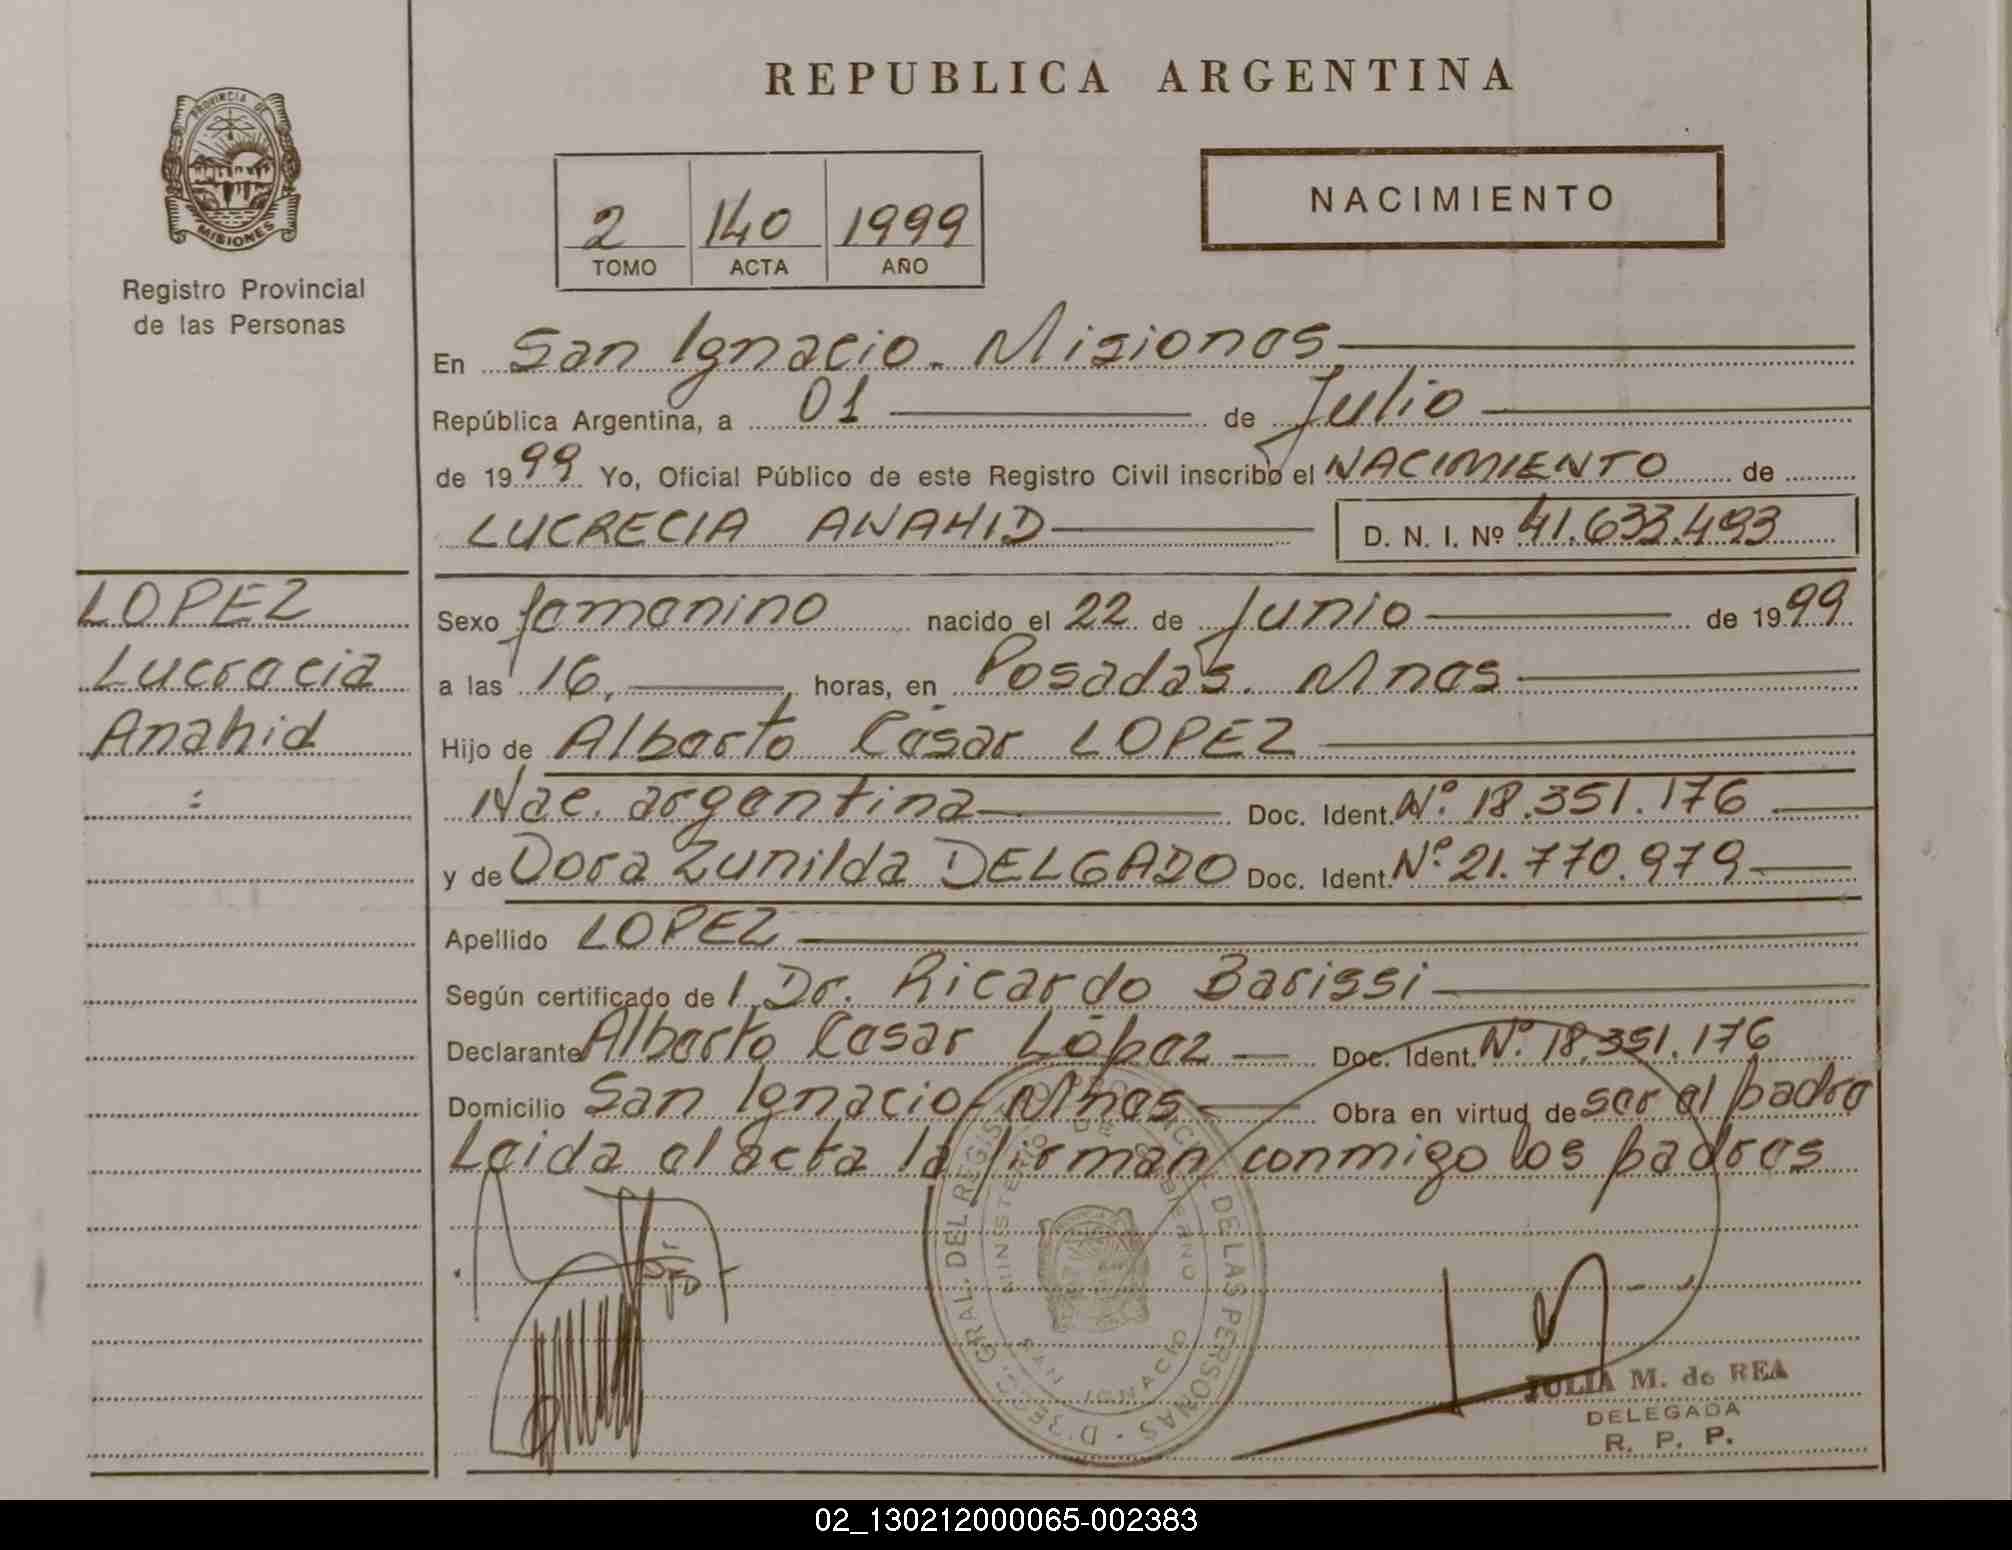 REPUBLICA ARGENTINA
PROVINCIA DE
MISIONES
Registro Provincial
de las Personas
2 140 1999
TOMO ACTA AÑO
NACIMIENTO
En San Ignacio. Misiones
República Argentina, a 01 de Julio
de 1999 Yo, Oficial Público de este Registro Civil inscribo el NACIMIENTO de
LUCRECIA ANAHID D. N. I. Nº 41.633.493
LOPEZ
Lucrecia
Anahid
Sexo femenino nacido el 22 de Junio de 1999
a las 16, horas, en Posadas. Mnes
Hijo de Alberto César LOPEZ
Nac. argentina Doc. Ident. Nº 18.351.176
y de Dora Zunilda DELGADO Doc. Ident. Nº 21.770.979
Apellido LOPEZ
Según certificado de l Dr. Ricardo Barissi
Declarante Alberto Cesar López Doc. Ident. Nº 18.351.176
Domicilio San Ignacio Mnes Obra en virtud de ser el padre
Leida el acta la firman conmigo los padres
GRAL. DEL REGISTRO PROVINCIAL DE LAS PERSONAS
MINISTERIO DE GOBIERNO
SAN IGNACIO
JULIA M. de REA
DELEGADA
R. P. P.
02_130212000065-002383